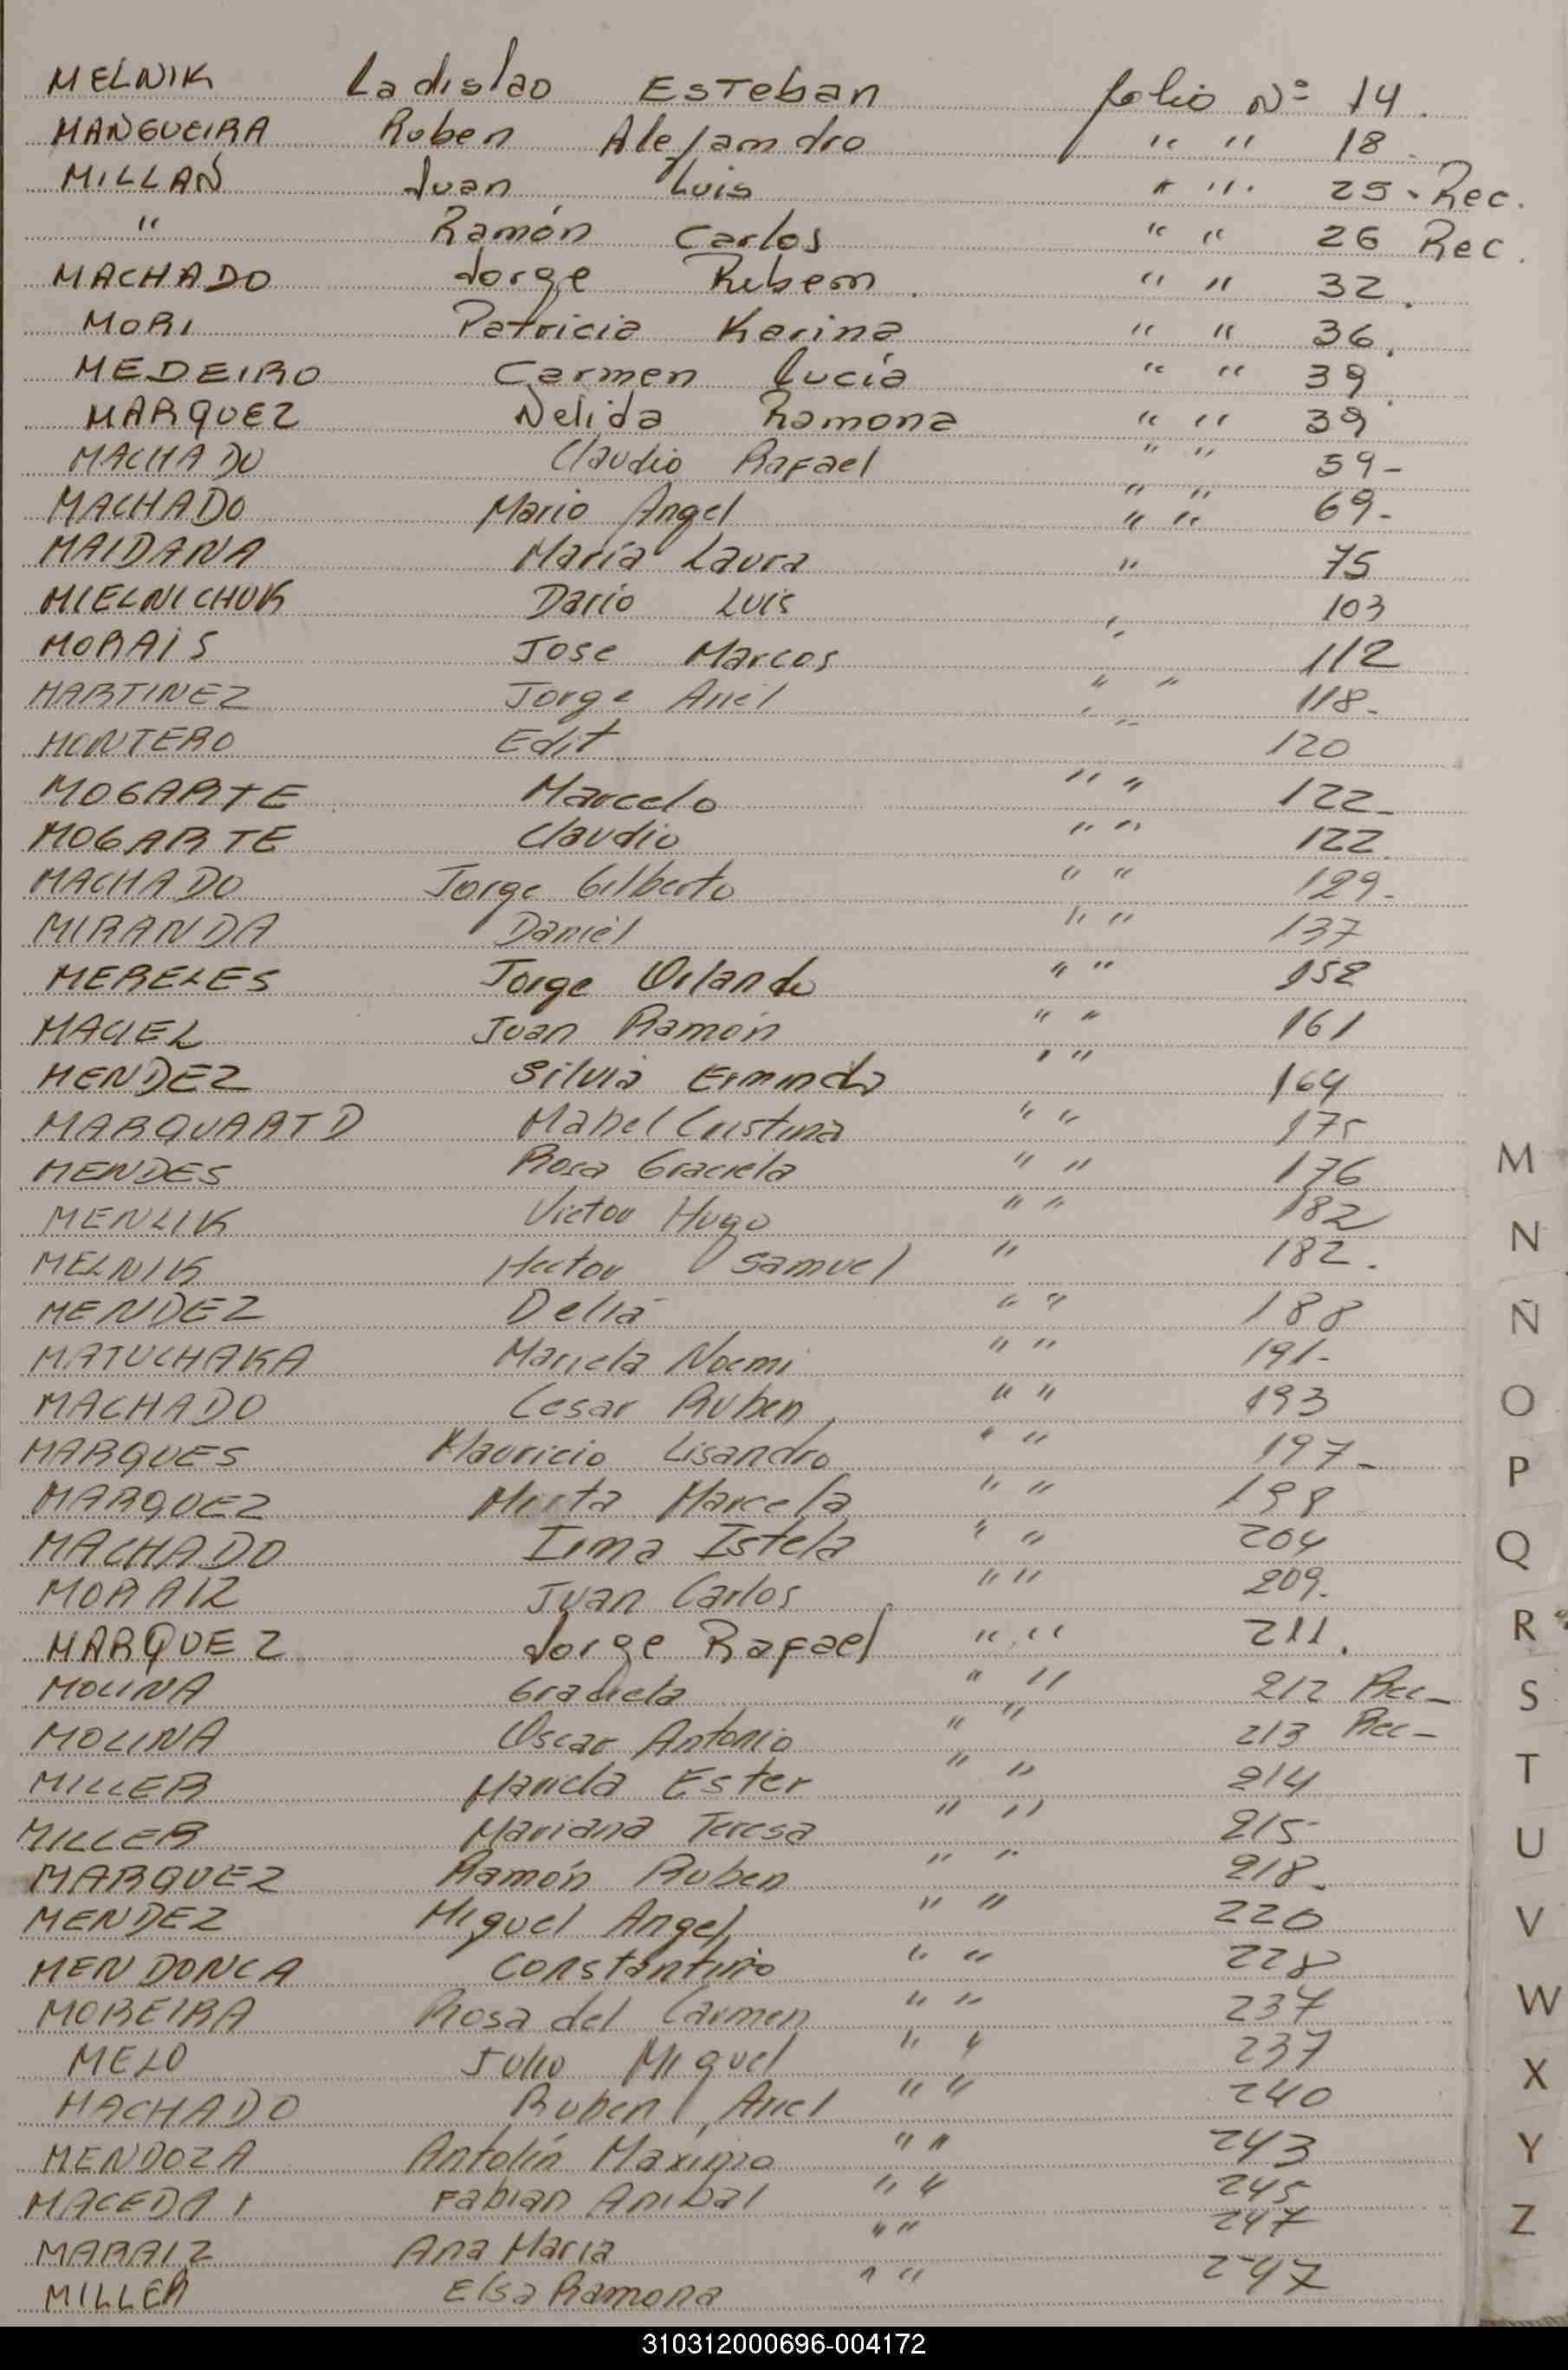 MELNIK Ladislao ESTeban folio Nº 14.
MANGUEIRA Ruben Alejandro " " 18.
MILLAN Juan Luis " " 25 - Rec.
" Ramón Carlos " " 26 Rec.
MACHADO Jorge Rubem. " " 32.
MORI Patricia Karina " " 36.
MEDEIRO Carmen Lucía " " 39.
MARQUEZ Nelida Ramona " " 39
MACHADO Claudio Rafael " " 59-
MACHADO Mario Angel " " 69-
MAIDANA María Laura " " 75
MIELNICHUK Dario Luis " 103
MORAIS Jose Marcos " 112
MARTINEZ Jorge Ariel " " 118-
MONTERO Edit " " 120
MOGARTE Marcelo " " 122-
MOGARTE Claudio " " 122
MACHADO Jorge Gilberto " " 129-
MIRANDA Daniel " " 137
MERELES Jorge Orlando " " 152
MACIEL Juan Ramón " " 161
MENDEZ Silvia Erminda " " 164
MARQUAATD Mabel Cristina " " 175
MENDES Rosa Graciela " " 176
MENLIK Victor Hugo " " 182
MELNIK Hector Samuel " 182.
MENDEZ Delia " " 188
MATUCHAKA Mariela Noemi " " 191-
MACHADO Cesar Ruben " " 193
MARQUES Mauricio Lisandro " " 197-
MARQUEZ Mirta Marcela " " 198
MACHADO Irma Istela " " 204
MORAIZ Juan Carlos " " 209.
MARQUEZ Jorge Rafael " " 211.
MOLINA Graciela " " 212 Rec-
MOLINA Oscar Antonio " " 213 Rec-
MILLER Mariela Ester " " 214
MILLER Mariana Teresa " " 215
MARQUEZ Ramón Ruben " " 218-
MENDEZ Miguel Angel " " 220
MENDONCA Constantino " " 228
MOREIRA Rosa del Carmen " " 237
MELO Julio Miguel " " 237
MACHADO Ruben Ariel " " 240
MENDOZA Antolín Maximo " " 243
MACEDA Fabian Anibal " " 245
MARAIZ Ana Maria " " 247
MILLER Elsa Ramona " " 247
M
N
Ñ
O
P
Q
R
S
T
U
V
W
X
Y
Z
310312000696-004172